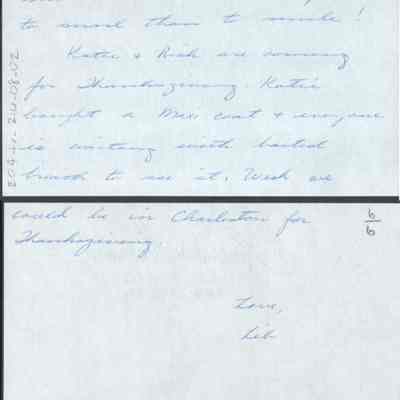 to send than to smile!
Katie & Rick are coming
for Thanksgiving. Katie
bought a Maxi coat & everyone
is waiting with baited
breath to see it. Wish we
could be in Charleston for
Thanksgiving.
6/6
Love,
Lib